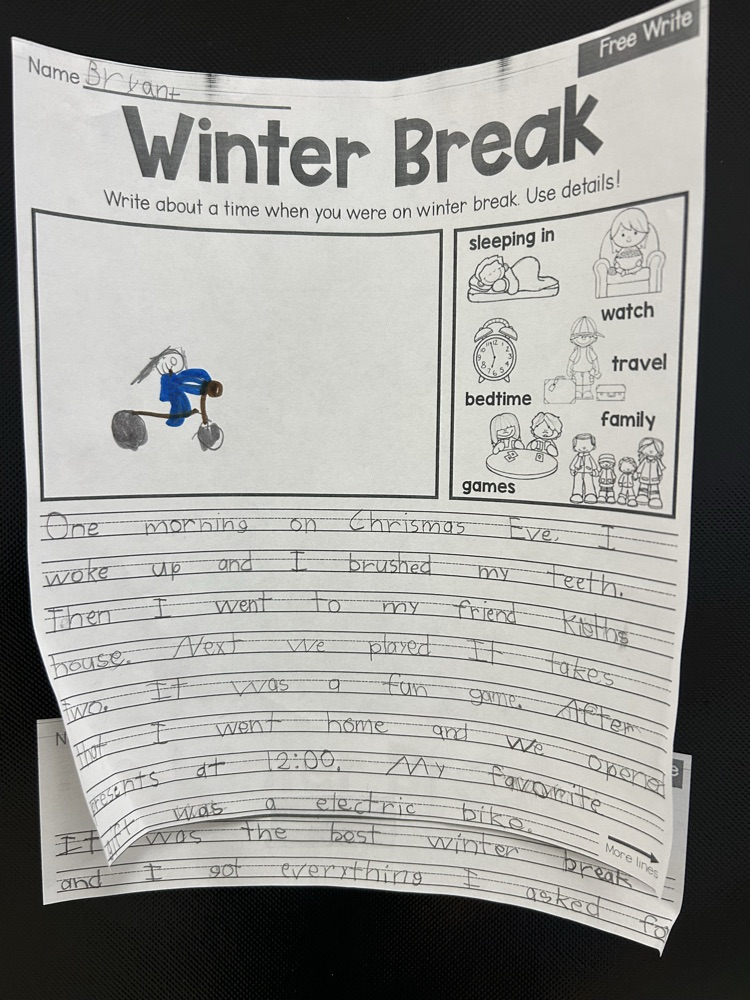 Free Write
Name Bryant
Winter Break
Write about a time when you were on winter break. Use details!
sleeping in
watch
travel
bedtime
family
games
One morning on Chrismas Eve, I
woke up and I brushed my teeth.
Then I went to my friend
house. Next we played It takes
two. It was a fun game. After
that I went home and we opened
presents at 12:00. My favorite
gift was a electric bike.
More lines
It was the best winter break
and I got everything I asked fo